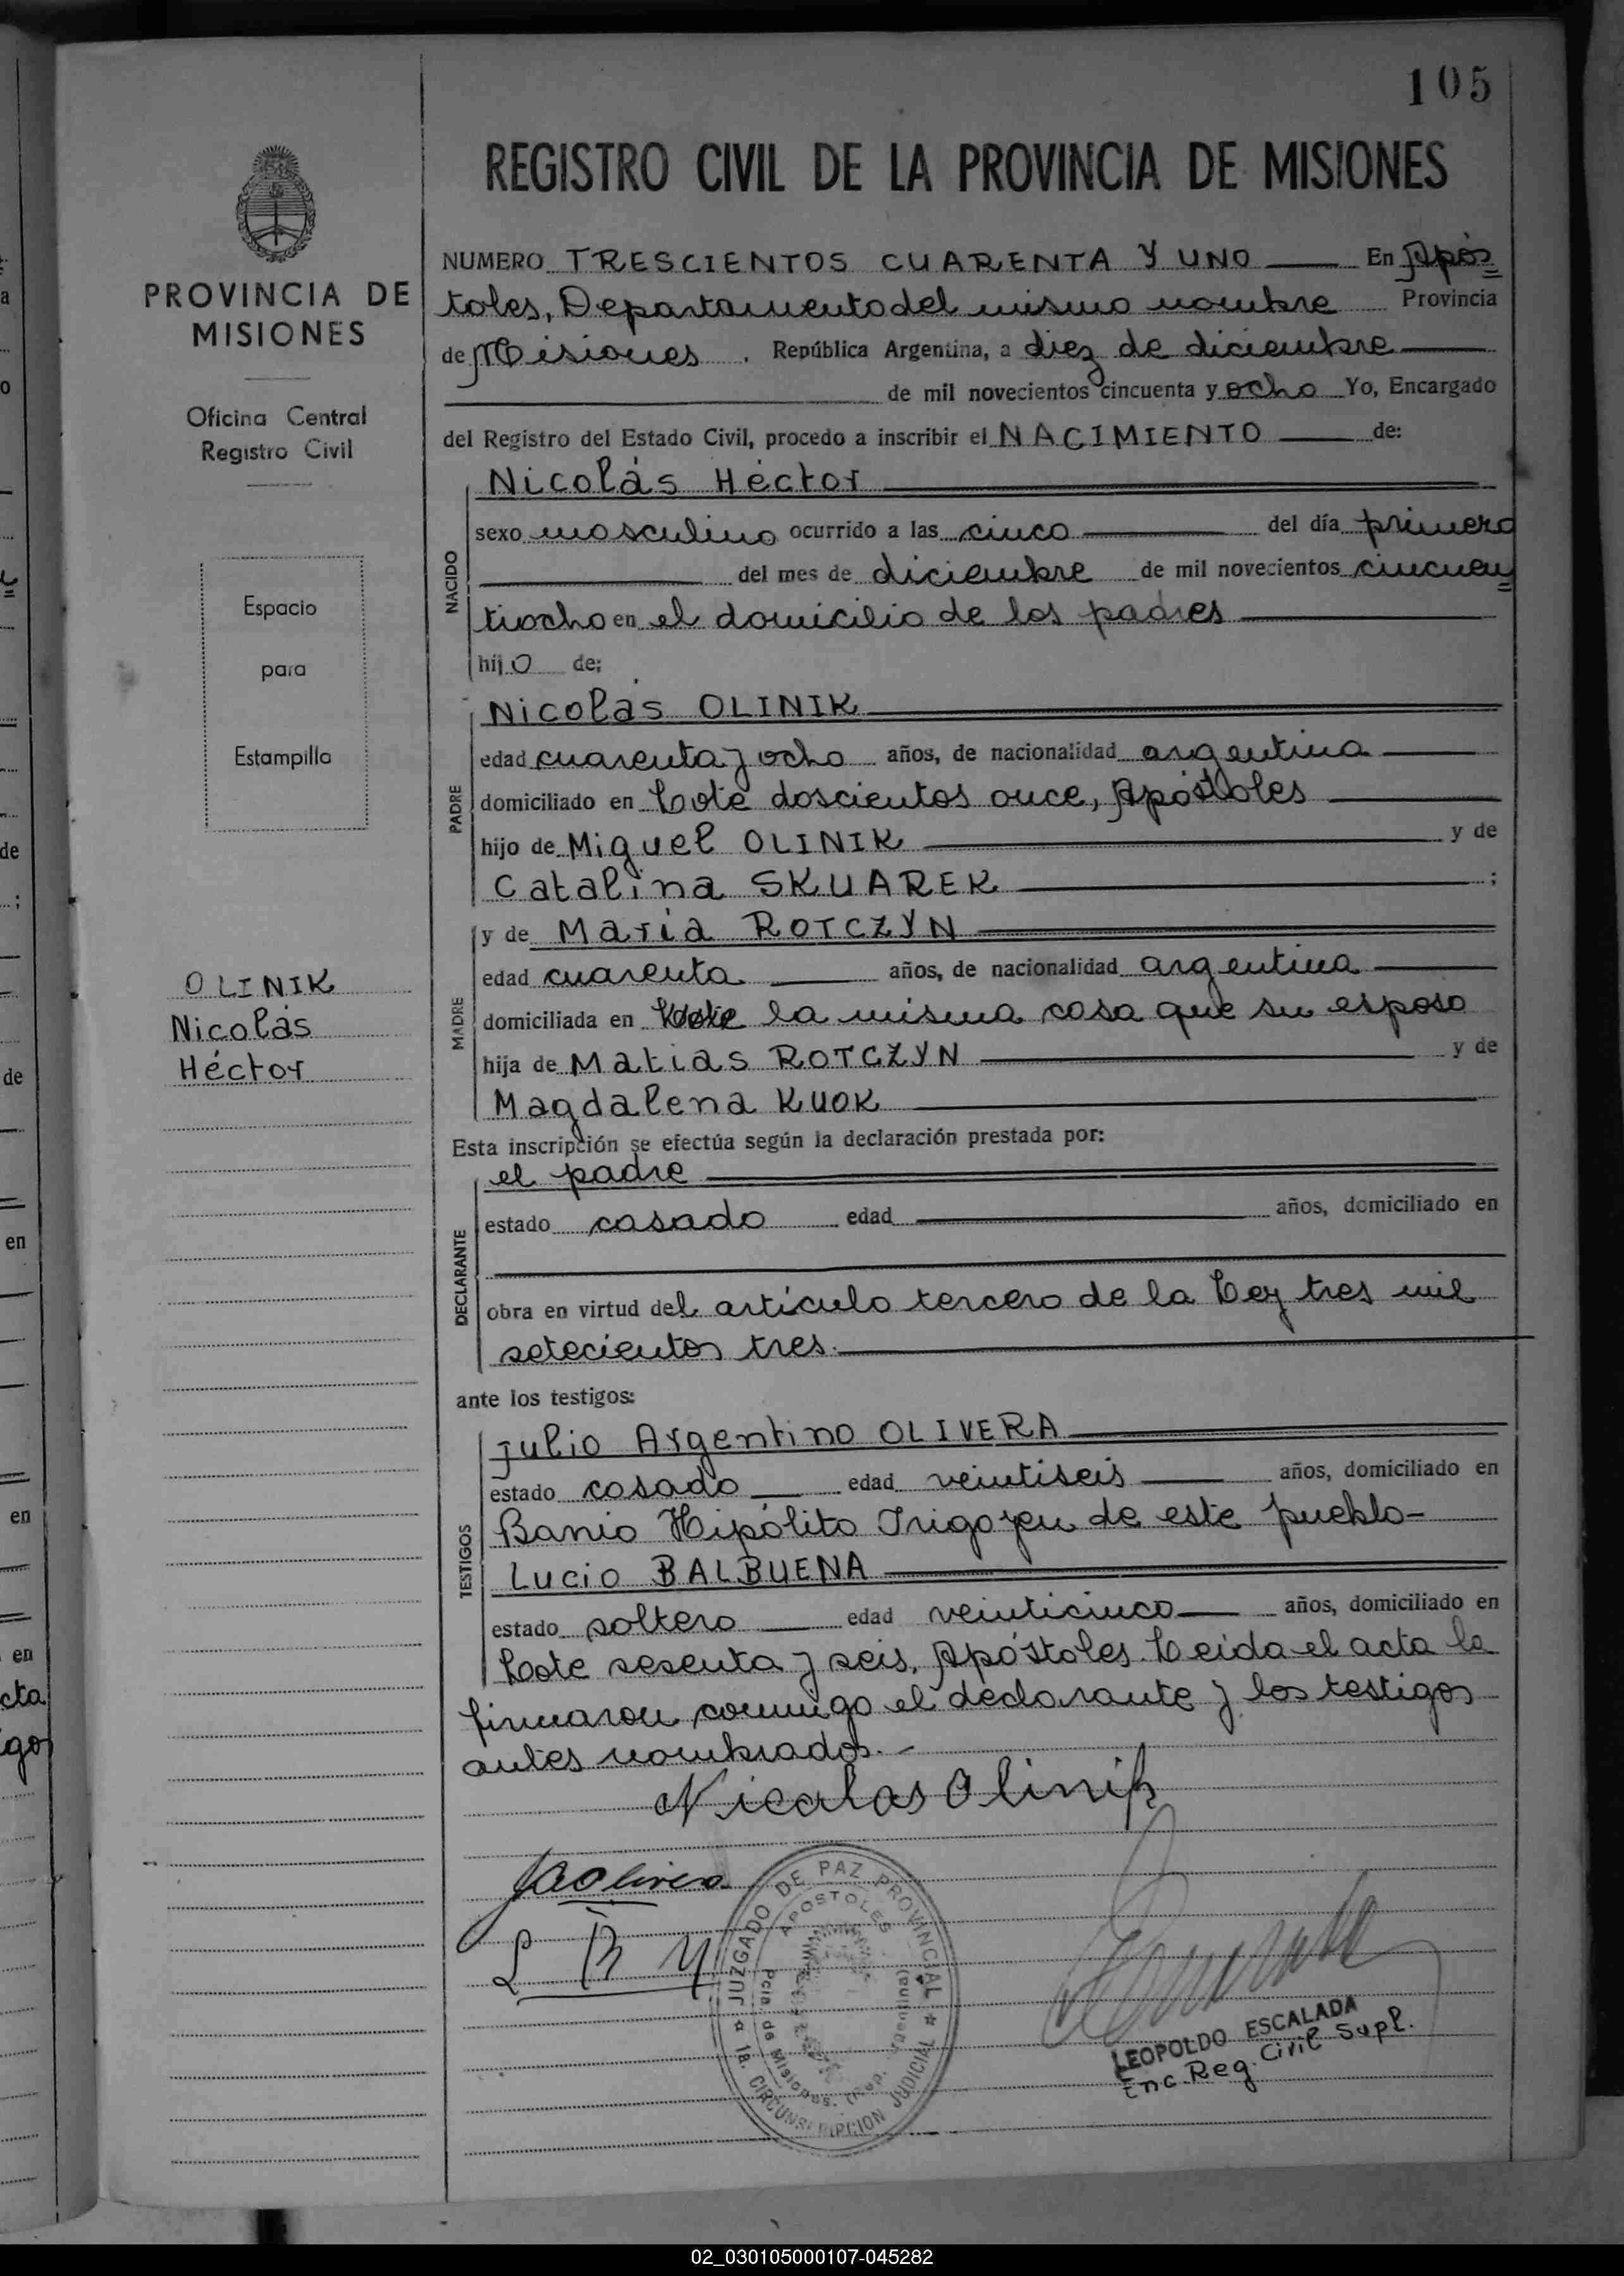 105
REGISTRO CIVIL DE LA PROVINCIA DE MISIONES
PROVINCIA DE
MISIONES
Oficina Central
Registro Civil
Espacio
para
Estampilla
OLINIK
Nicolás
Héctor
NUMERO TRESCIENTOS CUARENTA Y UNO En Após
toles, Departamento del mismo nombre Provincia
de Misiones. República Argentina, a diez de diciembre
de mil novecientos cincuenta y ocho Yo, Encargado
del Registro del Estado Civil, procedo a inscribir el NACIMIENTO de:
NACIDO
Nicolás Héctor
sexo masculino ocurrido a las cinco del día primero
del mes de diciembre de mil novecientos cincuen
tiocho en el domicilio de los padres
hijo de:
PADRE
Nicolás OLINIK
edad cuarenta y ocho años, de nacionalidad argentina
domiciliado en Lote doscientos once, Apóstoles
hijo de Miguel OLINIK y de
Catalina SKUAREK ;
MADRE
y de Maria ROTCZYN
edad cuarenta años, de nacionalidad argentina
domiciliada en la misma casa que su esposo
hija de Matias ROTCZYN y de
Magdalena KUOK
Esta inscripción se efectúa según la declaración prestada por:
DECLARANTE
el padre
estado casado edad años, domiciliado en
obra en virtud del artículo tercero de la Ley tres mil
setecientos tres.
ante los testigos:
TESTIGOS
Julio Argentino OLIVERA
estado casado edad veintiseis años, domiciliado en
Barrio Hipólito Irigoyen de este pueblo-
Lucio BALBUENA
estado soltero edad veinticinco años, domiciliado en
Lote sesenta y seis, Apóstoles. Leida el acta la
firmaron conmigo el declarante y los testigos
antes nombrados.-
Nicolas Olinik
JAOlivera
L B
JUZGADO DE PAZ PROVINCIAL
APOSTOLES
Pcia. de Misiones. (Rep. Argentina)
1a. CIRCUNSCRIPCION JUDICIAL
LEOPOLDO ESCALADA
Enc. Reg. Civil Supl.
a
o
de
;
de
en
en
en
cta
go
02_030105000107-045282